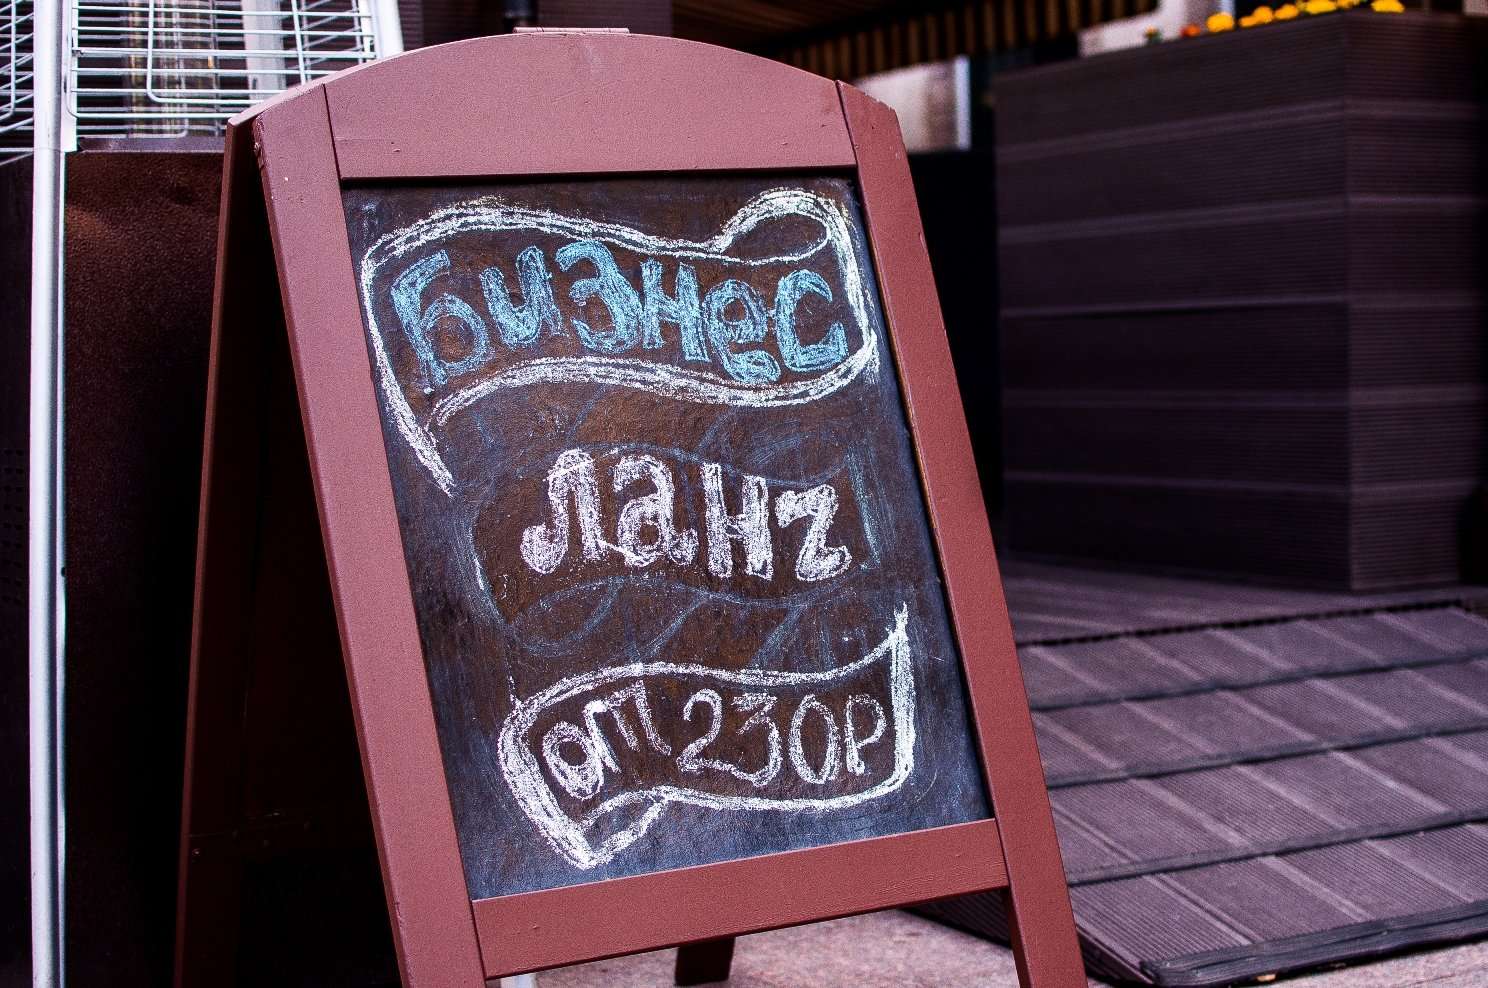 Бизнес
ланч
от 230р